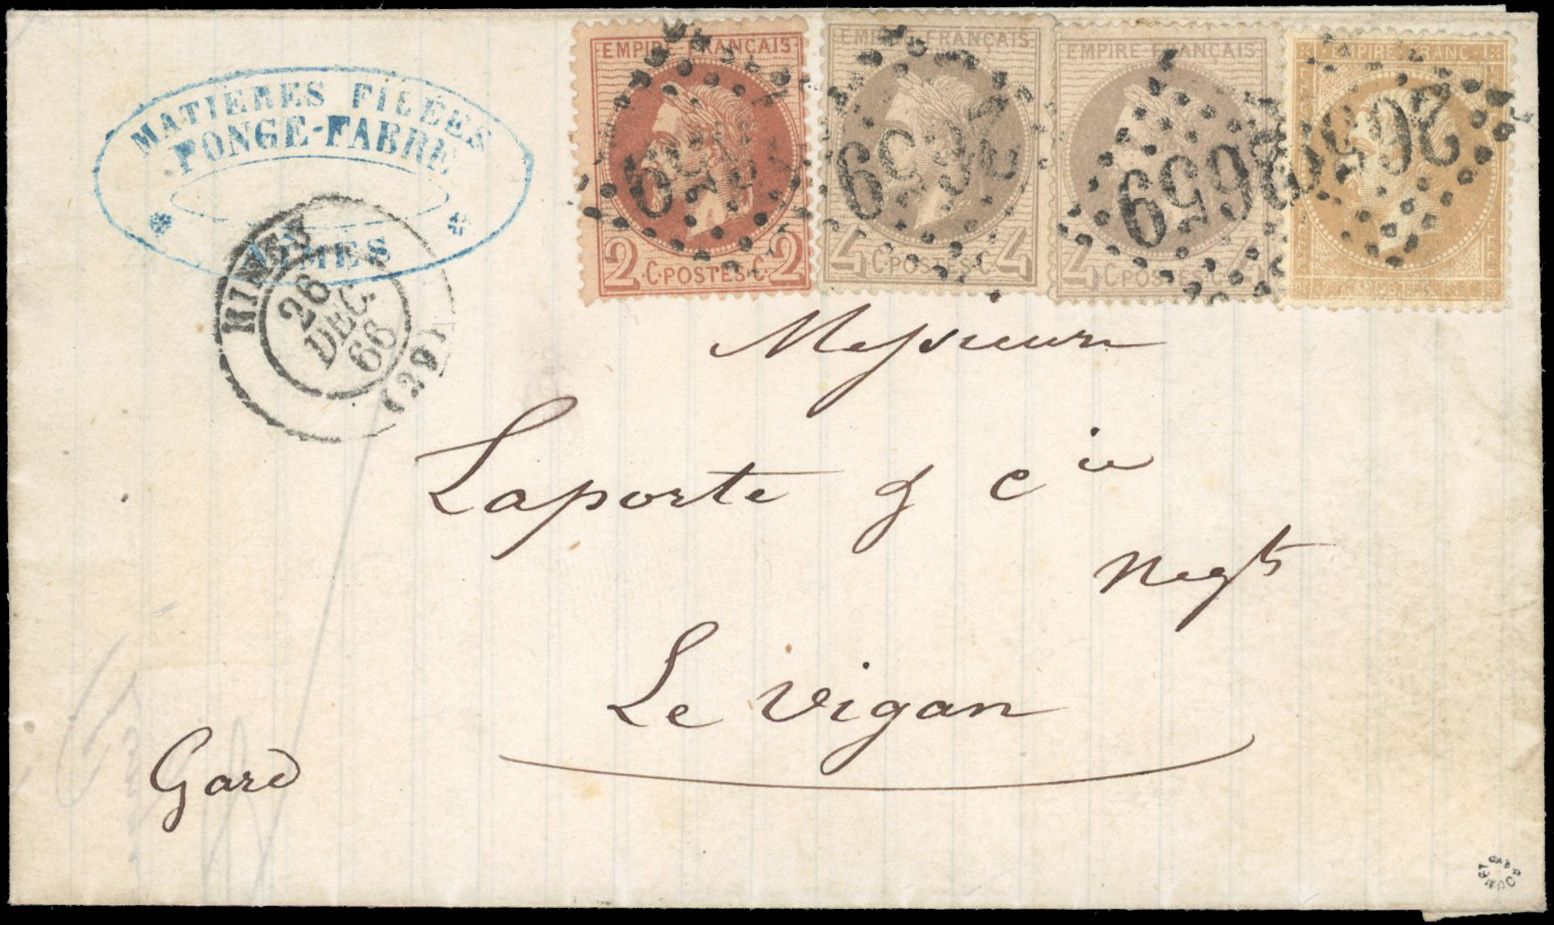 MATIÈRES FILÉES
PONGE-FABRE
NIMES
NIMES
26
DEC
66
(29)
EMPIRE FRANÇAIS
2 C. POSTES. C. 2
2659
EMPIRE FRANÇAIS
4 C. POSTES. C. 4
2659
EMPIRE FRANÇAIS
4 C. POSTES. C. 4
2659
EMPIRE FRANC
2659
Messieurs
Laporte & Cie
Negts
Le Vigan
Gard